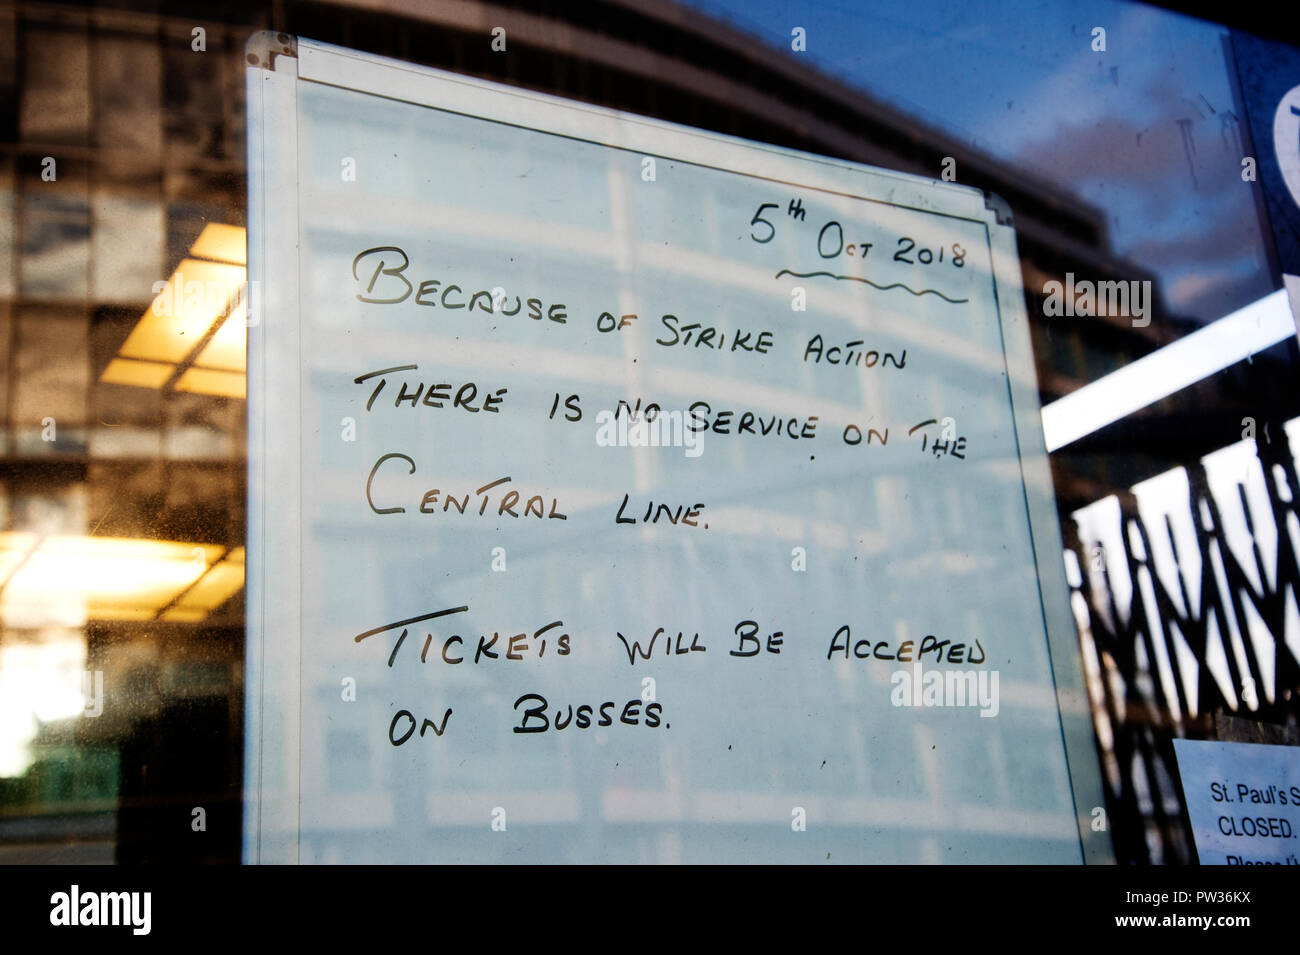 5th Oct 2018
BECAUSE OF STRIKE ACTION
THERE IS NO SERVICE ON THE
CENTRAL LINE.
TICKETS WILL BE ACCEPTED
ON BUSSES.
St. Paul's
CLOSED.
alamy
Image ID: PW36KX
www.alamy.com